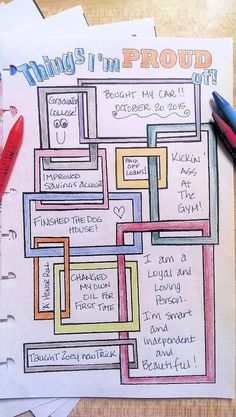 Things I'm PROUD
of!
Graduated
College!
BOUGHT MY CAR!!
OCTOBER 20 2015
IMPROVED
SAVINGS ACCOUNT
PAID
OFF
LOANS!
KICKIN'
ASS
AT THE
GYM!
FINISHED THE DOG
HOUSE!
A HONOR ROLL
CHANGED
MY OWN
OIL FOR
FIRST TIME
I am a
Loyal and
Loving
Person.
I'm smart
and
Independent
and
Beautiful!
Taught Zoey new Trick